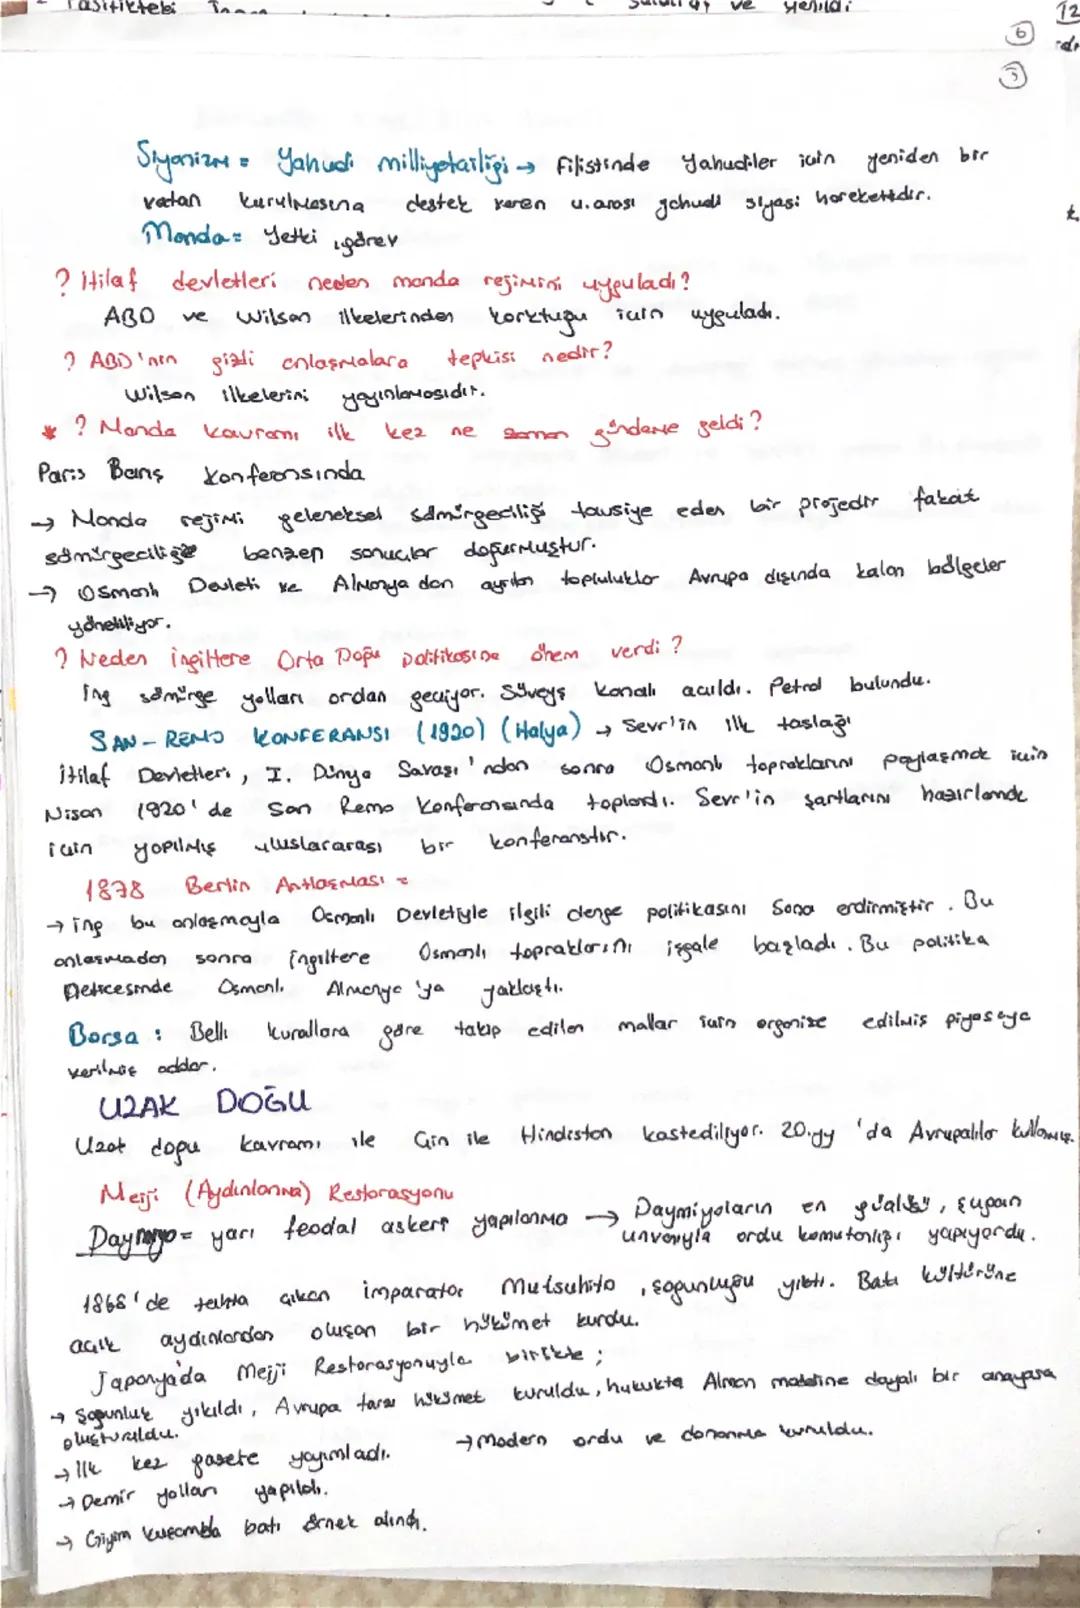 Pasifikteki ve yenildi
12
6
3
Siyonizm = Yahudi milliyetçiliği → Filistinde Yahudiler için yeniden bir
vatan kurulmasına destek veren u.arası yahudi siyasi hareketidir.
Manda = Yetki, görev
? İtilaf devletleri neden manda rejimini uyguladı?
ABD ve Wilson ilkelerinden korktuğu için uyguladı.
? ABD'nin gizli anlaşmalara tepkisi nedir?
Wilson ilkelerini yayınlamasıdır.
* ? Manda kavramı ilk kez ne zaman gündeme geldi?
Paris Barış Konferansında
→ Manda rejimi geleneksel sömürgeciliği tavsiye eden bir projedir fakat
sömürgeciliğe benzer sonuçlar doğurmuştur.
→ Osmanlı Devleti ve Almanya dan ayrılan topluluklar Avrupa dışında kalan bölgeler
yönetiliyor.
? Neden İngiltere Orta Doğu politikasına önem verdi?
İng sömürge yolları ordan geçiyor. Süveyş kanalı açıldı. Petrol bulundu.
SAN-REMO KONFERANSI (1920) (İtalya) → Sevr'in ilk taslağı
İtilaf Devletleri, I. Dünya Savaşı'ndan sonra Osmanlı topraklarını paylaşmak için
Nisan 1920'de San Remo Konferansında toplandı. Sevr'in şartlarını hazırlamak
için yapılmış uluslararası bir konferanstır.
1878 Berlin Antlaşması =
→ İng bu anlaşmayla Osmanlı Devletiyle ilgili denge politikasını sona erdirmiştir. Bu
anlaşmadan sonra İngiltere Osmanlı topraklarını işgale başladı. Bu politika
neticesinde Osmanlı Almanya'ya yaklaştı.
Borsa: Belli kurallara göre takip edilen mallar için organize edilmiş piyasaya
verilmiş addır.
UZAK DOĞU
Uzak doğu kavramı ile Çin ile Hindistan kastediliyor. 20.yy'da Avrupalılar kullanmış.
Meiji (Aydınlanma) Restorasyonu
Daymiyo = yarı feodal askeri yapılanma → Daymiyoların en güçlüsü, şugan
unvanıyla ordu komutanlığı yapıyordu.
1868'de tahta çıkan imparator Mutsuhito, şogunluğu yıktı. Batı kültürüne
açık aydınlardan oluşan bir hükümet kurdu.
Japonya'da Meiji Restorasyonuyla birlikte;
→ Şogunluk yıkıldı, Avrupa tarzı hükümet kuruldu, hukukta Alman modeline dayalı bir anayasa
oluşturuldu.
→ İlk kez gazete yayımladı. → Modern ordu ve donanma kuruldu.
→ Demir yolları yapıldı.
→ Giyim kuşamda batı örnek alındı.